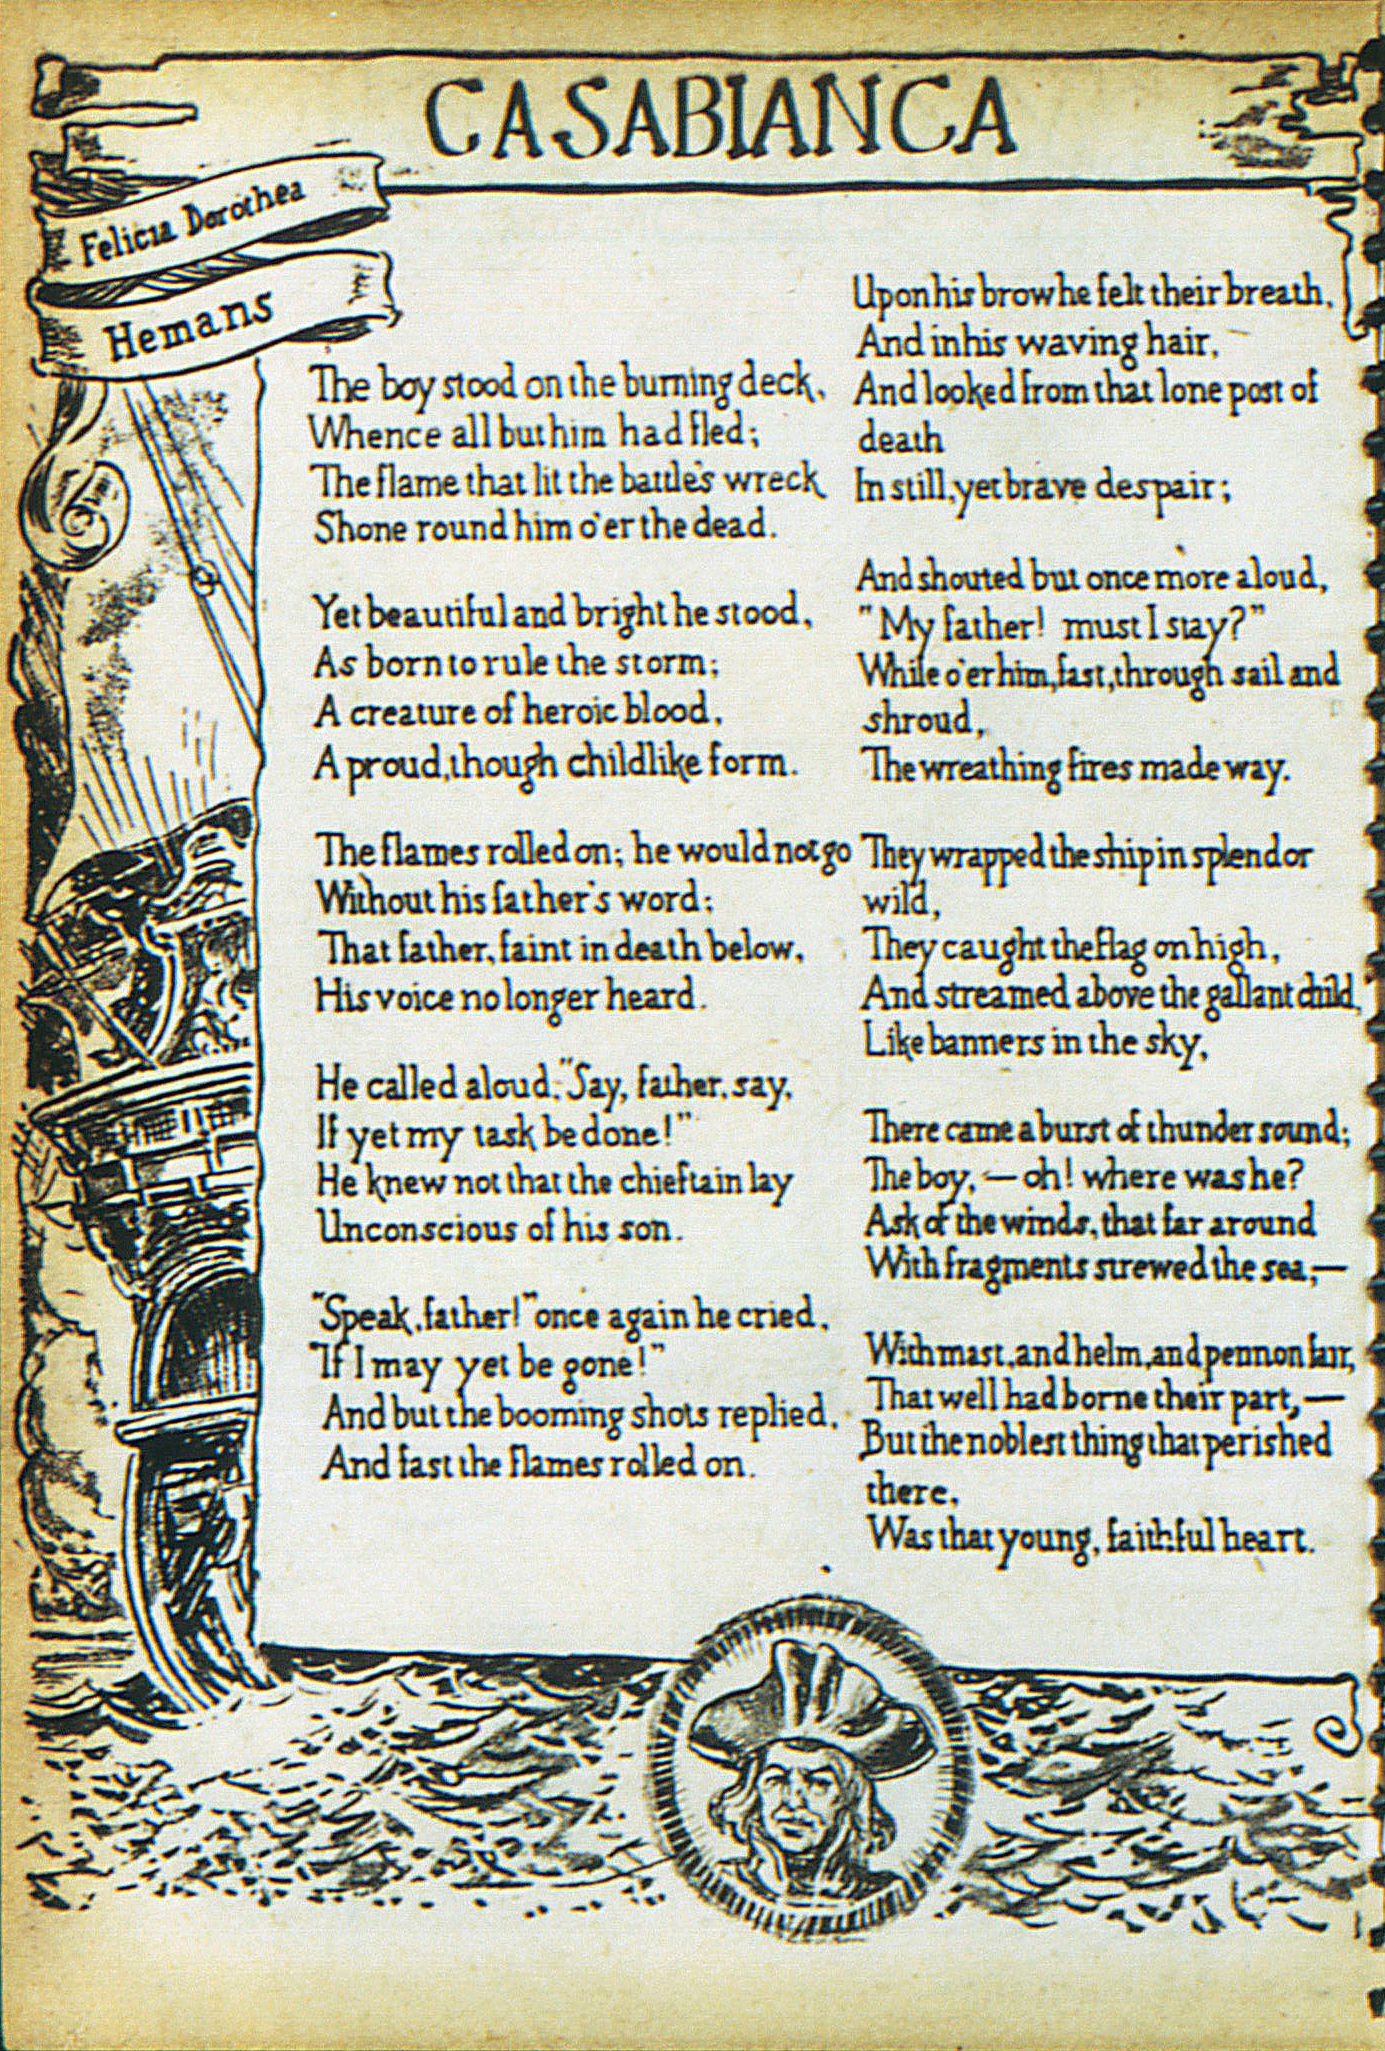 CASABIANCA
Felicia Dorothea
Hemans
The boy stood on the burning deck,
Whence all but him had fled;
The flame that lit the battle's wreck
Shone round him o'er the dead.
Yet beautiful and bright he stood,
As born to rule the storm;
A creature of heroic blood,
A proud, though childlike form.
The flames rolled on; he would not go
Without his father's word;
That father, faint in death below,
His voice no longer heard.
He called aloud: "Say, father, say,
If yet my task be done!"
He knew not that the chieftain lay
Unconscious of his son.
"Speak, father!" once again he cried,
"If I may yet be gone!"
And but the booming shots replied,
And fast the flames rolled on.
Upon his brow he felt their breath,
And in his waving hair,
And looked from that lone post of
death
In still, yet brave despair;
And shouted but once more aloud,
"My father! must I stay?"
While o'er him, fast, through sail and
shroud,
The wreathing fires made way.
They wrapped the ship in splendor
wild,
They caught the flag on high,
And streamed above the gallant child,
Like banners in the sky,
There came a burst of thunder sound;
The boy, — oh! where was he?
Ask of the winds, that far around
With fragments strewed the sea,—
With mast, and helm, and pennon fair,
That well had borne their part,—
But the noblest thing that perished
there,
Was that young, faithful heart.